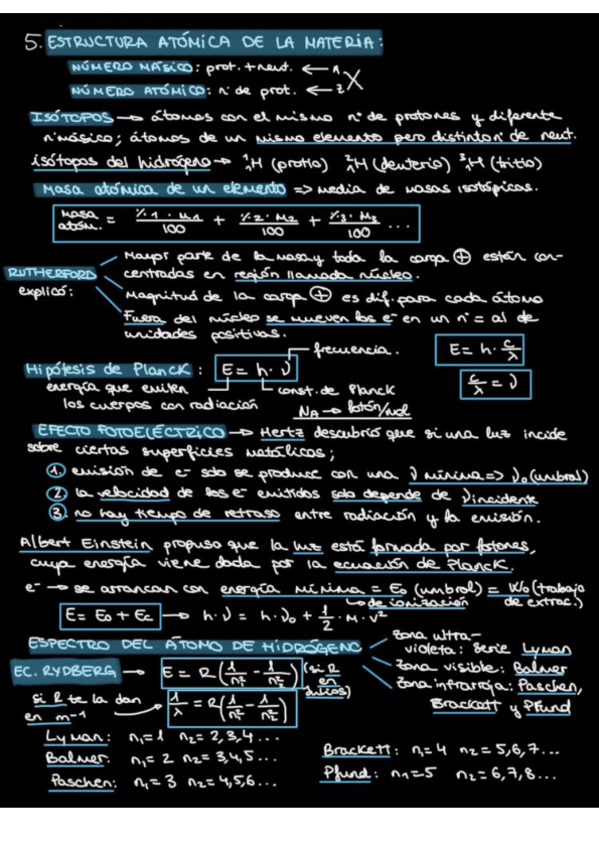 5. ESTRUCTURA ATÓMICA DE LA MATERIA:
NÚMERO MÁSICO: prot. + neut. ← A
X
NÚMERO ATÓMICO: nº de prot. ← Z
ISÓTOPOS → átomos con el mismo nº de protones y diferente
nº másico; átomos de un mismo elemento pero distinto nº de neut.
isótopos del hidrógeno → ¹₁H (protio) ²₁H (deuterio) ³₁H (tritio)
Masa atómica de un elemento => media de masas isotópicas.
Masa atóm. = %1 · M1/100 + %2 · M2/100 + %3 · M3/100 ...
RUTHERFORD explicó:
Mayor parte de la masa y toda la carga ⊕ están con-
centradas en región llamada núcleo.
Magnitud de la carga ⊕ es dif. para cada átomo
Fuera del núcleo se mueven los e⁻ en un nº = al de
unidades positivas.
Hipótesis de Planck: E = h · ν
frecuencia.
E = h · c/λ
energía que emiten
los cuerpos con radiación
const. de Planck
c/λ = ν
NA → fotón/mol
EFECTO FOTOELÉCTRICO → Hertz descubrió que si una luz incide
sobre ciertas superficies metálicas;
1. emisión de e⁻ solo se produce con una ν mínima => ν₀ (umbral)
2. la velocidad de los e⁻ emitidos solo depende de ν incidente
3. no hay tiempo de retraso entre radiación y la emisión.
Albert Einstein propuso que la luz está formada por fotones,
cuya energía viene dada por la ecuación de Planck.
e⁻ → se arrancan con energía mínima = E₀ (umbral) = W₀ (trabajo
de extrac.)
→ de ionización
E = E₀ + Ec → h · ν = h · ν₀ + 1/2 · m · v²
ESPECTRO DEL ÁTOMO DE HIDRÓGENO
Zona ultra-
violeta: Serie Lyman
Zona visible: Balmer
Zona infrarroja: Paschen,
Brackett y Pfund
EC. RYDBERG → E = R(1/n₁² - 1/n₂²) (si R en julios)
Si R te la dan
en m⁻¹ → 1/λ = R(1/n₁² - 1/n₂²)
Lyman: n₁ = 1 n₂ = 2, 3, 4 ...
Balmer: n₁ = 2 n₂ = 3, 4, 5 ...
Paschen: n₁ = 3 n₂ = 4, 5, 6 ...
Brackett: n₁ = 4 n₂ = 5, 6, 7 ...
Pfund: n₁ = 5 n₂ = 6, 7, 8 ...